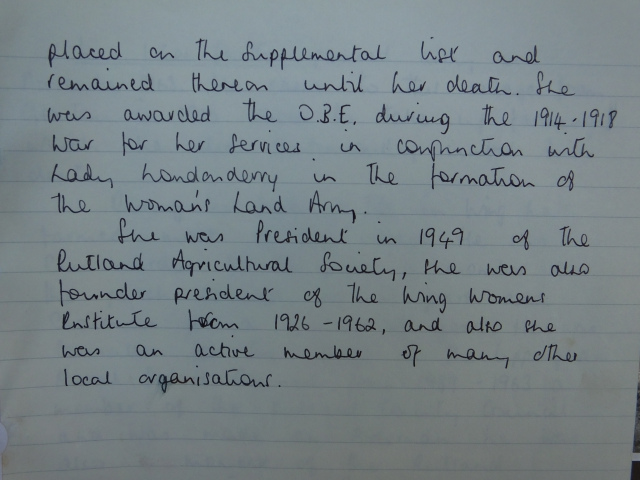 placed on the Supplemental list and
remained thereon until her death. She
was awarded the O.B.E. during the 1914-1918
War for her Services in conjunction with
Lady Londonderry in the formation of
the Woman's Land Army.
She was President in 1949 of the
Rutland Agricultural Society, She was also
founder president of the Wing Womens
Institute from 1926-1962, and also she
was an active member of many other
local organisations.